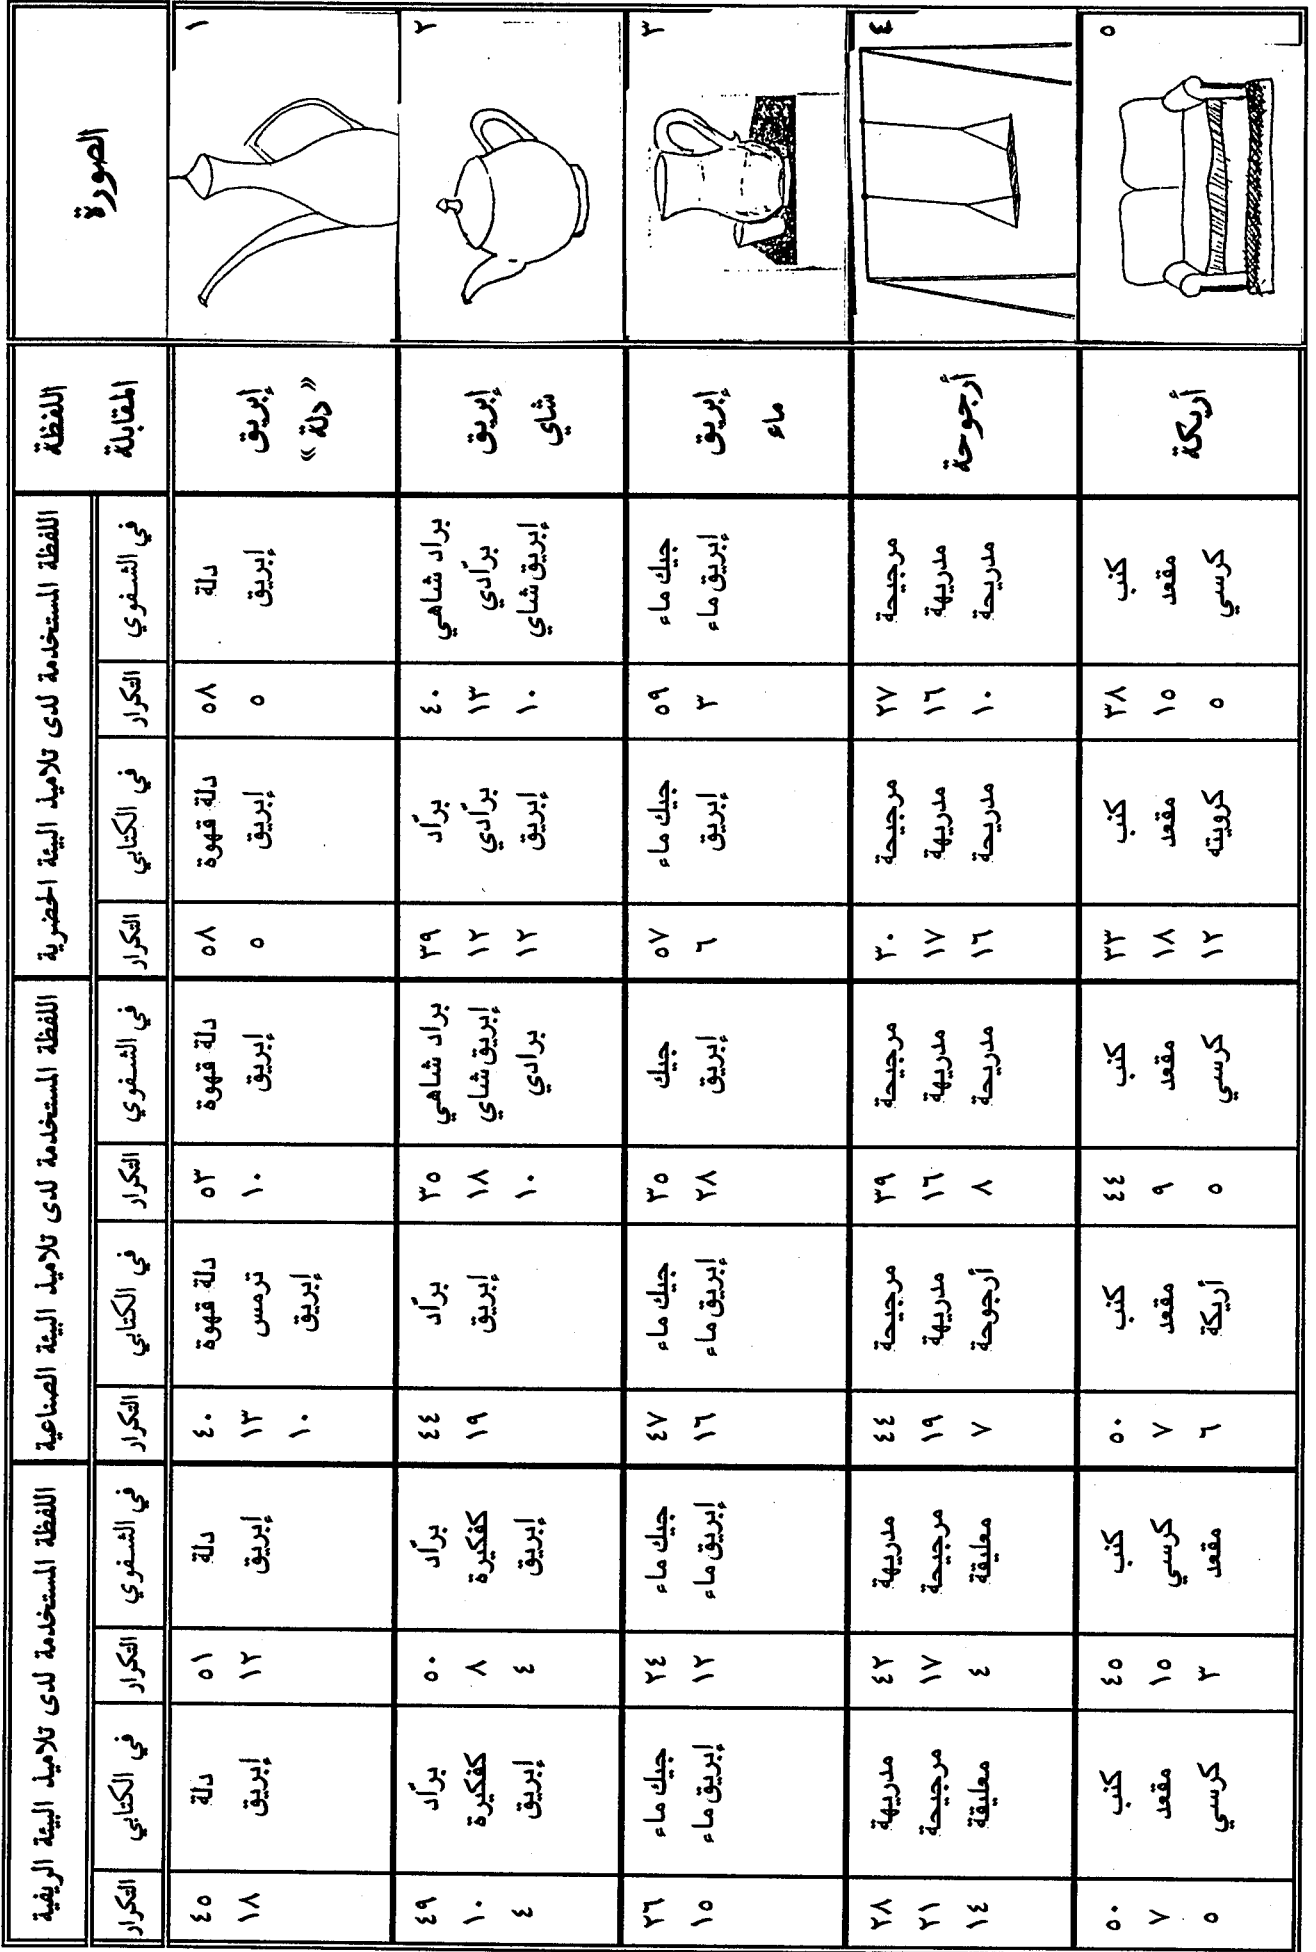 الصورة
اللفظة
المقابلة
اللفظة المستخدمة لدى تلاميذ البيئة الحضرية
اللفظة المستخدمة لدى تلاميذ البيئة الصناعية
اللفظة المستخدمة لدى تلاميذ البيئة الريفية
في الشفوي
التكرار
في الكتابي
التكرار
في الشفوي
التكرار
في الكتابي
التكرار
في الشفوي
التكرار
في الكتابي
التكرار
١
إبريق
« دلة »
دلة
إبريق
٥٨
٥
دلة قهوة
إبريق
٥٨
٥
دلة قهوة
إبريق
٥٣
١٠
دلة قهوة
ترمس
إبريق
٤٠
١٣
١٠
دلة
إبريق
٥١
١٢
دلة
إبريق
٤٥
١٨
٢
إبريق
شاي
براد شاهي
برّادي
إبريق شاي
٤٠
١٣
١٠
برّاد
برّادي
إبريق
٣٩
١٢
١٢
براد شاهي
إبريق شاي
برادي
٣٥
١٨
١٠
برّاد
إبريق
٤٤
١٩
برّاد
كفكيرة
إبريق
٥٠
٨
٤
برّاد
كفكيرة
إبريق
٤٩
١٠
٤
٣
إبريق
ماء
جيك ماء
إبريق ماء
٥٩
٣
جيك ماء
إبريق
٥٧
٦
جيك
إبريق
٣٥
٢٨
جيك ماء
إبريق ماء
٤٧
١٦
جيك ماء
إبريق ماء
٢٤
١٢
جيك ماء
إبريق ماء
٢٦
١٥
٤
أرجوحة
مرجيحة
مدريهة
مدريحة
٣٧
١٦
١٠
مرجيحة
مدريهة
مدريحة
٣٠
١٧
١٦
مرجيحة
مدريهة
مدريحة
٣٩
١٦
٨
مرجيحة
مدريهة
أرجوحة
٤٤
١٩
٧
مدريهة
مرجيحة
معليقة
٤٢
١٧
٤
مدريهة
مرجيحة
معليقة
٢٨
٢١
١٤
٥
أريكة
كنب
مقعد
كرسي
٣٨
١٥
٥
كنب
مقعد
كرويته
٣٣
١٨
١٢
كنب
مقعد
كرسي
٤٤
٩
٥
كنب
مقعد
أريكة
٥٠
٧
٦
كنب
كرسي
مقعد
٤٥
١٥
٣
كنب
مقعد
كرسي
٥٠
٧
٥